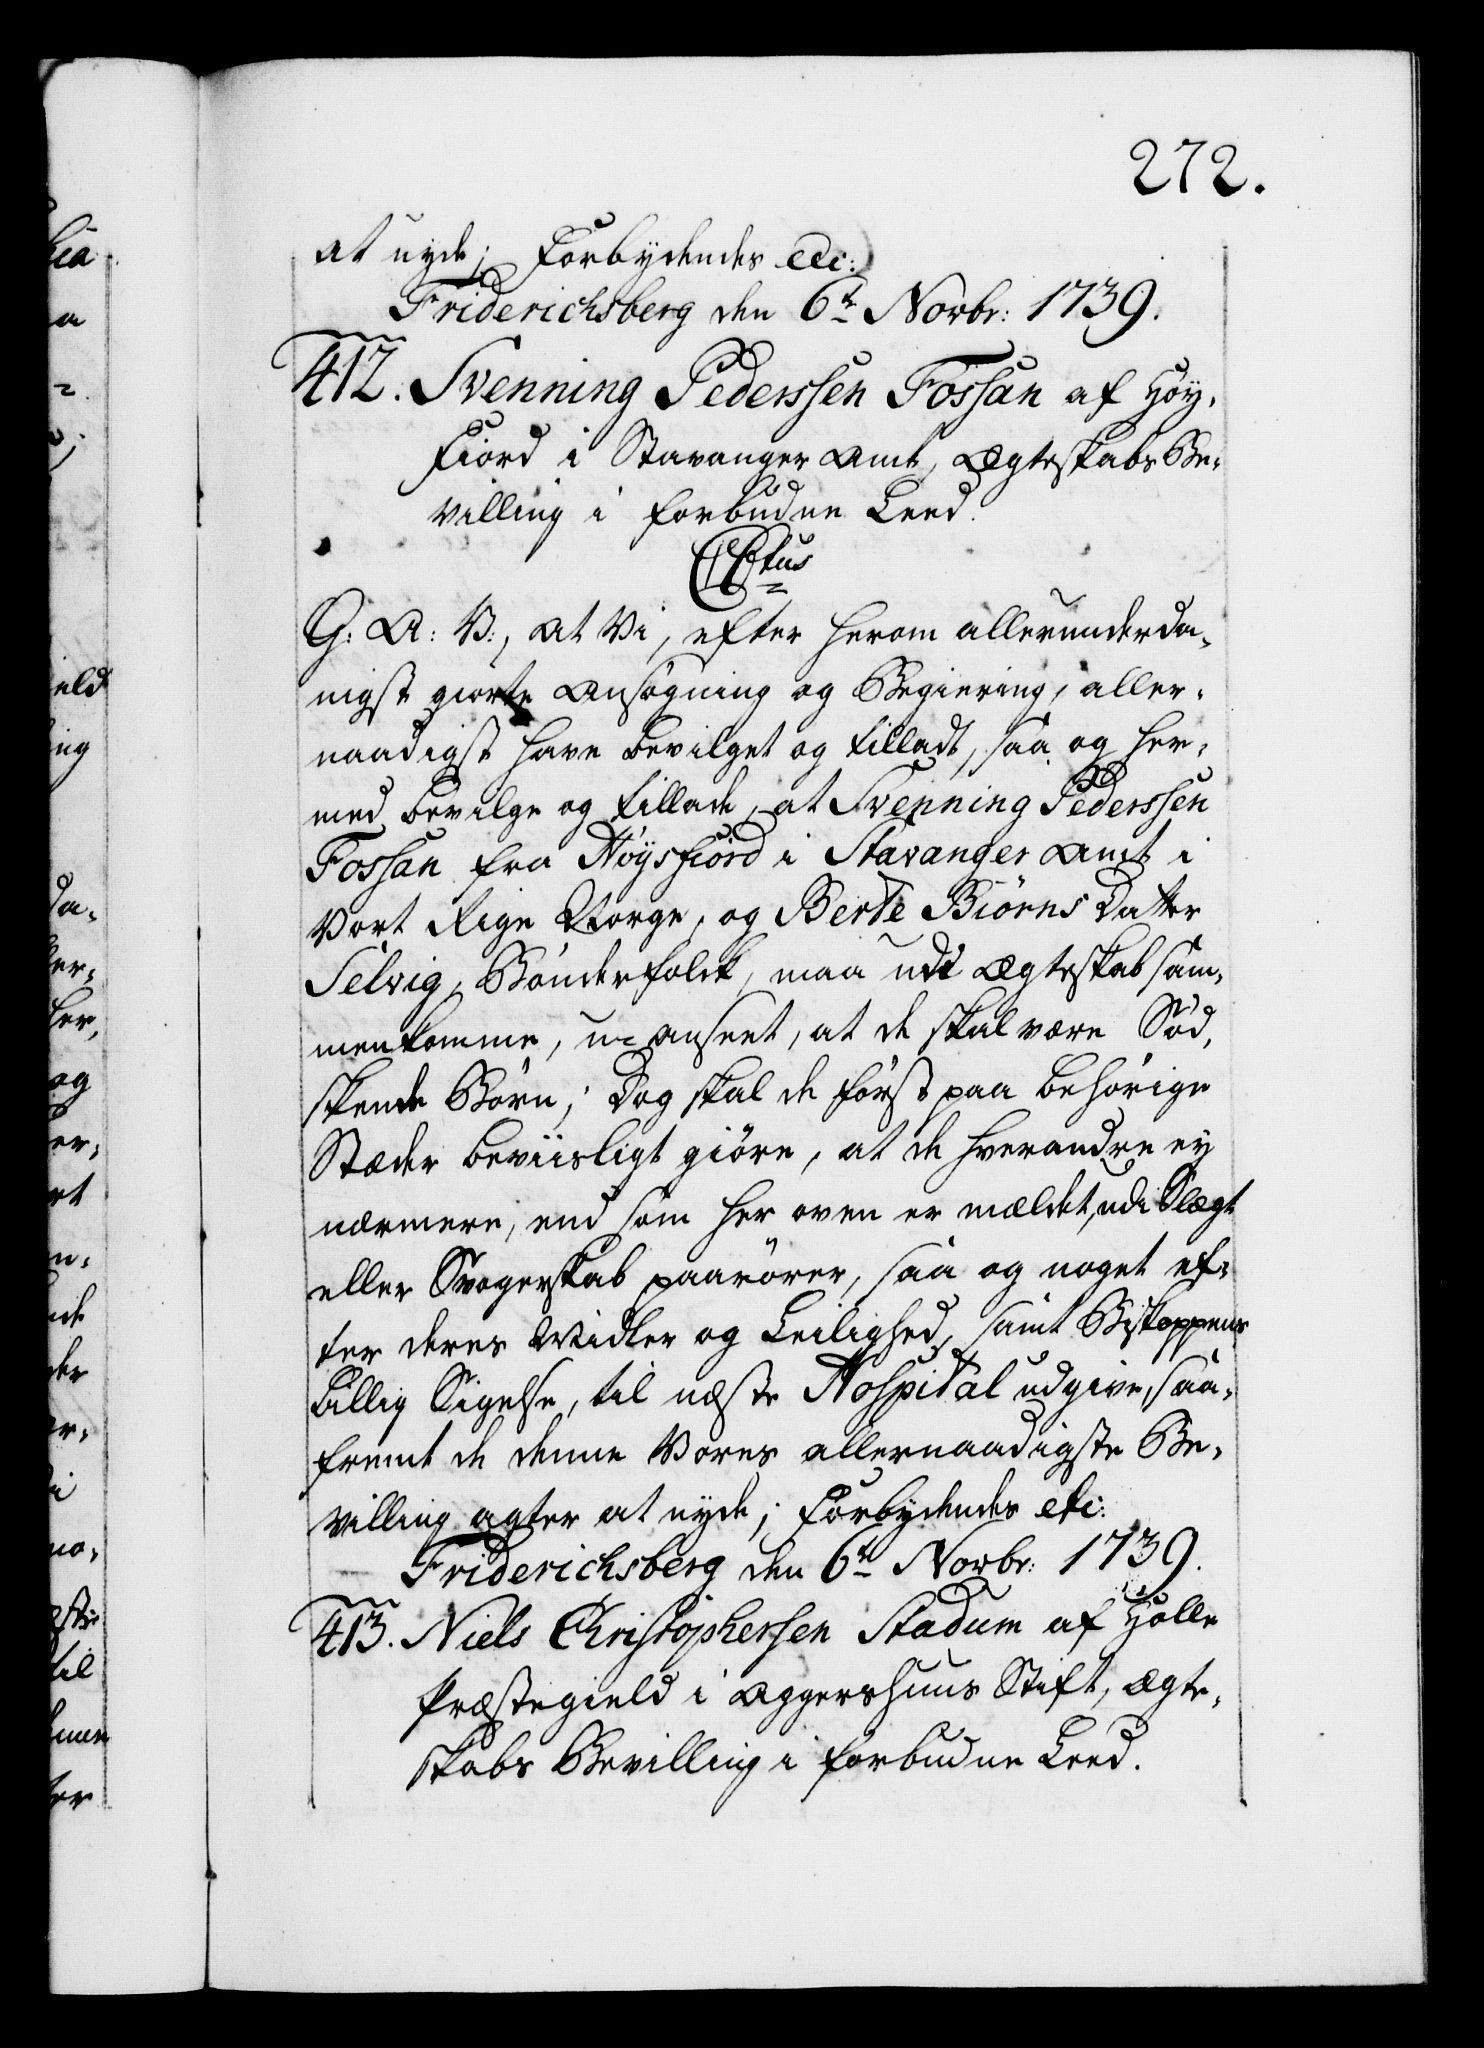 272.
at nyde; Forbydendes etc:
Friderichsberg den 6te Novbr: 1739.
412. Svenning Pederssen Fossan af Höy-
Fiord i Stavanger Amt, Ægteskabs Be-
villing i forbudne Leed.
CCtus
G: A: V:, at Vi, efter herom allerunderda-
nigst giorte Ansögning og Begiering, aller-
naadigst have bevilget og tilladt, saa og her-
med bevilge og tillade, at Svenning Pederssen
Fossan fra Höysfiord i Stavanger Amt i
Vort Rige Norge, og Berte Biörns Datter
Selvig, Bönderfolck, maa udi Ægteskab sam-
menkomme, u-anseet, at de skal være Sod-
skende Börn; Dog skal de först paa behörige
Stæder beviisligt giöre, at de hverandre ey
nærmere, end som her oven er mældet, udi Slægt
eller Svogerskab paarörer, saa og noget ef-
ter deres Midler og Leilighed, samt Biskoppens
billig Sigelse, til næste Hospital udgive, saa-
fremt de denne Vores allernaadigste Be-
villing agter at nyde; Forbydendes etc:
Friderichsberg den 6te Novbr: 1739.
413. Niels Christophersen Stadum af Holle
Præstegield i Aggershuus Stift, Ægte-
skabs Bevilling i forbudne Leed.